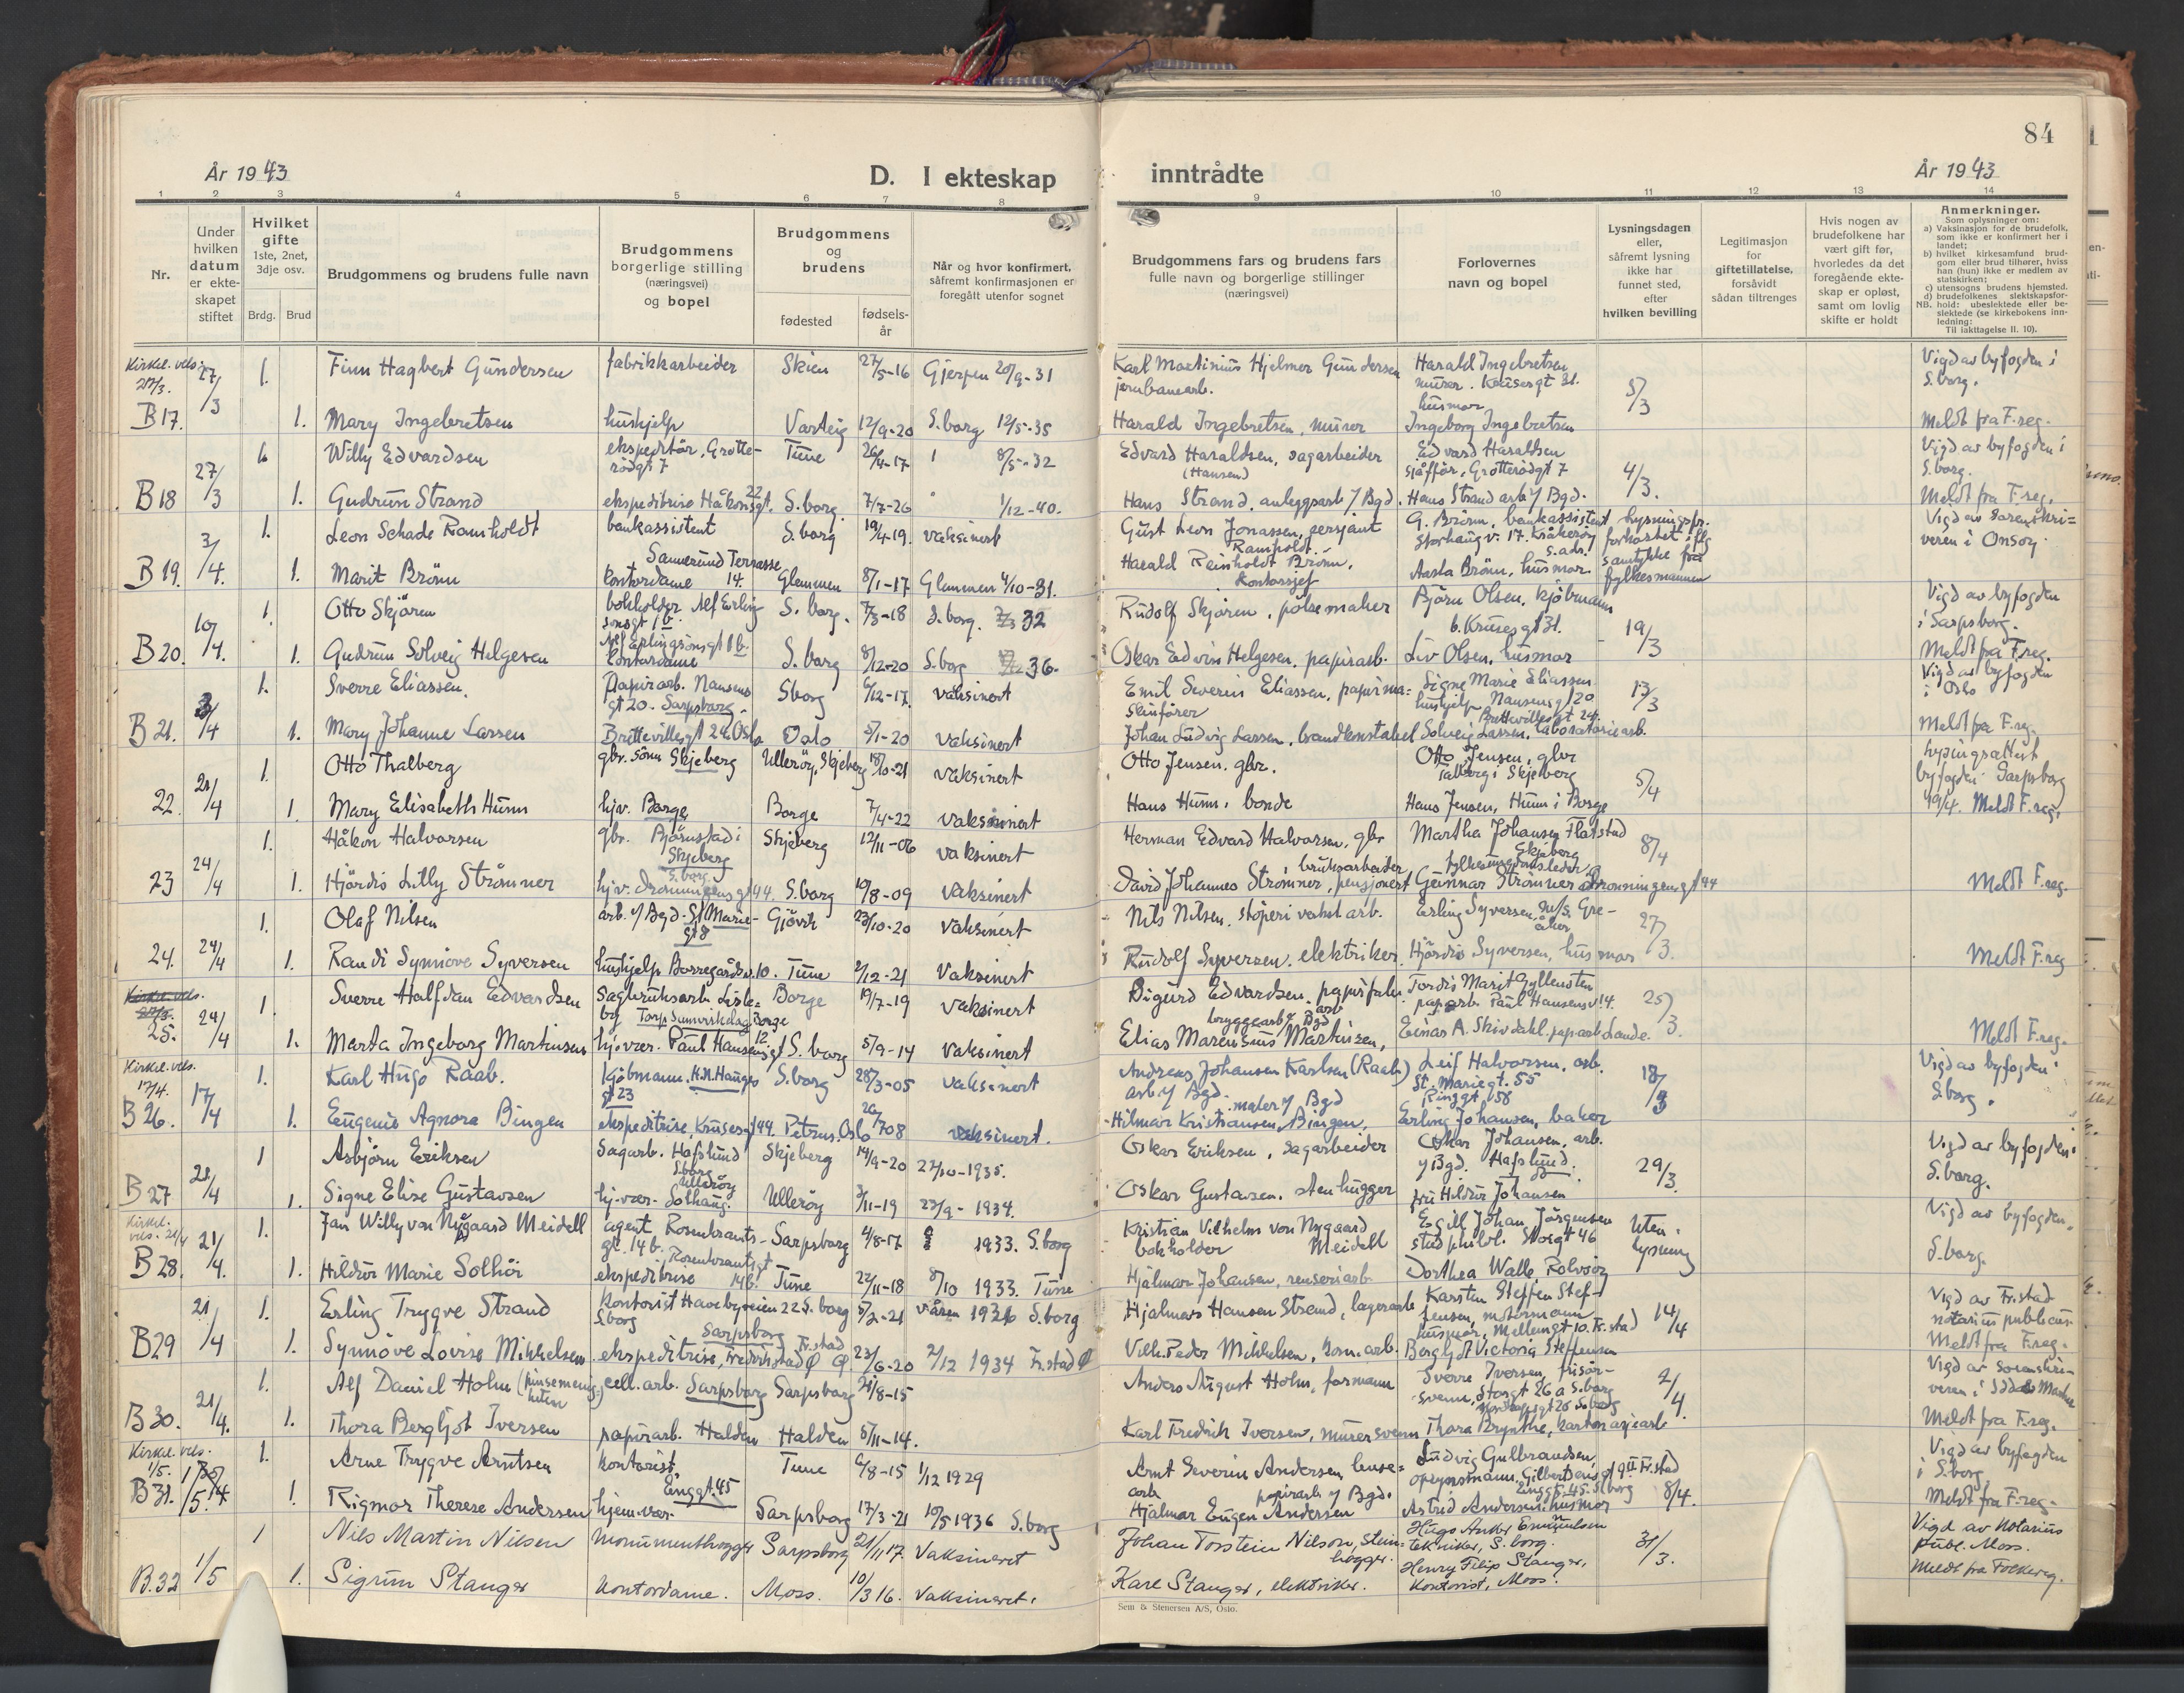 84
År 1943
D. I ekteskap
inntrådte
År 1943
1 2 3 4 5 6 7 8 9 10 11 12 13 14
Nr.
Under hvilken datum er ekteskapet stiftet
Hvilket gifte 1ste, 2net, 3dje osv.
Brdg. Brud
Brudgommens og brudens fulle navn
Brudgommens borgerlige stilling (næringsvei) og bopel
Brudgommens og brudens
fødested
fødselsår
Når og hvor konfirmert, såfremt konfirmasjonen er foregått utenfor sognet
Brudgommens fars og brudens fars fulle navn og borgerlige stillinger (næringsvei)
Forlovernes navn og bopel
Lysningsdagen eller, såfremt lysning ikke har funnet sted, efter hvilken bevilling
Legitimasjon for giftetillatelse, forsåvidt sådan tiltrenges
Hvis nogen av brudefolkene har vært gift før, hvorledes da det foregående ekteskap er opløst, samt om lovlig skifte er holdt
Anmerkninger.
Som oplysninger om:
a) Vaksinasjon for de brudefolk, som ikke er konfirmert her i landet;
b) hvilket kirkesamfund brudgom eller brud tilhører, hviss han (hun) ikke er medlem av statskirken;
c) utensogns brudens hjemsted.
d) brudefolkenes slektskapsforhold: ubeslektede eller beslektede (se kirkebokens innledning:
NB.
Til iakttagelse II. 10).
Kirkel. vels. 27/3 1. Finn Hagbert Gundersen fabrikkarbeider Skien 27/5-16 Gjerpen 20/9-31 Karl Martinius Hjelmer Gundersen jernbanearb. Harald Ingebretsen murer. Krusesgt 31. 5/3 Vigd av byfogden i S.borg.
B17. 1. Mary Ingebretsen hushjelp Varteig 12/9-20 S.borg 12/5-35 Harald Ingebretsen, murer husmor Ingeborg Ingebretsen Meldt fra F.reg.
27/3 Willy Edvardsen ekspeditør, Grotterødgt 7 Tune 26/4-17 8/5-32 Edvard Haraldsen, sagarbeider (Hansen) Edvard Haraldsen sjåffør, Grotterødgt 7 4/3. Vigd av byfogden i S.borg.
B18 1. Gudrun Strand ekspeditrise Håkonsgt. 22 S.borg 7/7-26 1/12-40. Hans Strand, anleggsarb y Bgd. Hans Strand arb y Bgd. Meldt fra F.reg.
3/4. 1. Leon Schade Ramholdt bankassistent S.borg 19/4-19. vaksinert Gust Leon Jonassen, sersjant Ramholdt G. Brönn, bankassistent Storhaug v. 17. Kråkerøy Lysningsfr. forkortet iflg samtykke fra fylkesmannen Vigd av sorenskriveren i Onsøy.
B19. 1. Marit Brönn kontordame Sannesund Terrasse 14. Glemmen 8/1-17 Glemmen 4/10-31. Harald Reinholdt Brönn, kontorsjef Aasta Brönn, husmor. s. adr.
10/4. 1. Otto Skjören bokholder Alf Erlingsønsgt 1b S.borg. 7/3-18 S.borg. 32 Rudolf Skjören, pølsemaker Björn Olsen, kjøbmann b. Krusesgt 31. 19/3 Vigd av byfogden i Sarpsborg.
B20. 1. Gudrun Solveig Helgesen Alf Erlingsønsgt 1b. kontordame S.borg 8/12-20 S.borg 36. Oskar Edvin Helgesen, papirarb. Liv Olsen, husmor Meldt fra F.reg.
3/4 1. Sverre Eliassen. papirarb. Nansens gt 20. Sarpsborg. Sborg 6/12-17. vaksinert Emil Severin Eliassen, papirmaskinfører Signe Marie Eliassen hushjelp Nansensgt 20 13/3 Vigd av byfogden i Oslo
B21. 1. Mary Johanne Larsen Brettevillesgt 24 Oslo Oslo 5/1-20 vaksinert Johan Ludvig Larsen, brandkonstabel Brettevillesgt 24. Solveig Larsen, laboratoriearb. Meldt fra F.reg.
21/4 1. Otto Thalberg gbr. sønn Skjeberg Ullerøy, Skjeberg 18/10-21 vaksinert Otto Jensen. gbr. Otto Jensen, gbr Talberg i Skjeberg 5/4 lysingsattest byfogden Sarpsborg
22. 1 Mary Elisabeth Hunn hjv. Borge Borge 7/4-22 vaksinert Hans Hunn, bonde Hans Jensen, Hunn i Borge 19/4. Meldt F.reg.
24/4 1. Håkon Halvorsen gbr. Bjørnstad i Skjeberg Skjeberg 12/11-06 vaksinert Herman Edvard Halvorsen, gbr Martha Johansen Flatstad Skjeberg 8/4
23 1. Hjördis Lilly Strömner hjv. Dronningensgt 44. S.borg S.borg 10/8-09 vaksinert David Johannes Strömner, bruksarbeider, pensjonert Gunnar Strömner Dronningensgt 44 Meldt F.reg.
24/4 1. Olaf Nilsen arb. y Bgd. St. Mariegt 8 Gjøvik 23/10-20 vaksinert Nils Nilsen, støperi vakst arb. Erling Syversen, m/s. Greåker 27/3.
24. 1. Randi Synnöve Syversen hushjelp Borregårdsv. 10. Tune 2/12-21 vaksinert Rudolf Syversen. elektriker. Hjördis Syversen, husmor Meldt F.reg
24/4 1. Sverre Halfdan Edvardsen Sagbruksarb. Lisleby Torp Borge Borge 19/7-19 vaksinert Sigurd Edvardsen. papirfabr. arb Tordis Marit Gyllensten pap.arb. Paul Hansensv 14. 25/3.
25. 1. Marta Ingeborg Martinsen hj.vær. Paul Hansensgt 12. S.borg 5/9-14 vaksinert Elias Marensius Martinsen, bryggearb y Bgd Einar A. Skivdahl. paparb. Lande. Meldt F.reg.
Kirkel. vels. 17/4. 17/4 1. Karl Hugo Raab. kjøbmann. H.N. Hauges gt 23 S.borg 28/3-05 vaksinert Andreas Johansen Karlsen (Raab) arb y Bgd Leif Halvorsen, arb. St. Mariegt. 55 18/3 Vigd av byfogden i S.borg.
B26. 1. Eugenie Agnora Bingen ekspeditrise, Krusesgt 44. Petrus. Oslo 20/7 08 vaksinert. Hilmar Kristiansen Bingen, maler y Bgd Ringgt 58 Erling Johansen, baker
21/4 1 Asbjörn Eriksen Sagarb. Hafslund S.borg Skjeberg 14/9-20 22/10-1935. Oskar Eriksen, sagarbeider Oskar Johansen, arb. y Bgd. Hafslund. 29/3. Vigd av byfogden i S.borg.
B27 1. Signe Elise Gustavsen hj.vær. Solhaug. Ullerøy Ullerøy 3/11-19 23/9-1934. Oskar Gustavsen. stenhugger fru Hildur Johansen
Kirkel. vels. 21/4 21/4. 1. Jan Willy von Nygaard Meidell agent Rosenkrantzgt. 14b. Sarpsborg 4/8-17 1933. S.borg Kristian Vilhelm von Nygaard Meidell bokholder Egill Johan Jörgensen stud.philol. Storgt 46 Uten lysning Vigd av byfogden. S.borg.
B28. 1. Hildur Marie Solhöi ekspeditrise Rosenkrantzgt 14b. Tune 22/11-18 8/10 1933. Tune Hjalmar Johansen, renseriarb. Dorthea Walle, Rolvsøy
21/4 1. Erling Trygve Strand kontorist Haabyveien 22 S.borg S.borg 5/2-21 våren 1936 S.borg Hjalmar Hansen Strand, lagerarb Karsten Steffen Steffensen, motormann 14/4 Vigd av Fr.stad notarius publicus
B29 1. Synnöve Lovise Mikkelsen ekspeditrise, Fredrikstad Ø Fr.stad Ø 23/6-20 2/12 1934 Fr.stad Ø Vilh. Peder Mikkelsen, kom.arb. husmor, Mellemgt 10. Fr.stad Bergljot Victoria Steffensen Meldt fra F.reg.
21/4. 1. Alf Daniel Holm (pinsemenigheten) cell. arb. Sarpsborg Sarpsborg 21/8-15 Anders August Holm, formann Sverre Iversen, frisørsvenn, Storgt 26a S.borg 2/4. Vigd av sorenskriveren i Idd & Marker
B30. 1. Thora Bergljot Iversen papirarb. Halden Halden 5/11-14. Karl Fredrik Iversen, murersvenn Thora Brynthe, kartonasjearb Meldt fra F.reg.
Kirkel. vels. 1/5. 1/5. 1. Arne Trygve Arntsen kontorist. Tune 6/8-15 1/12 1929 Arnt Severin Andersen, lensearb Ludvig Gulbrandsen, oppsynsmann, Gilbertsensgt 9 II Fr.stad 8/4. Vigd av byfogden i S.borg.
B31. 1. Rigmor Therese Andersen hjem.vær. Enggt. 45 Sarpsborg 17/3-21 10/5 1936 S.borg Hjalmar Eugen Andersen papirarb y Bgd. Enggt. 45. S.borg Astrid Andersen husmor Meldt fra F.reg.
1/5 1 Nils Martin Nilsen Monumenthogger Sarpsborg 21/11 17. Vaksineret Johan Torstein Nilson, steinhogger. Hugo Anker Emanuelsen tekniker, S.borg. 31/3. Vigd av Notarius Publ. Moss.
B.32 1. Sigrun Stanger Kontordame. Moss. 10/3 16. Vaksineret. Karl Stanger, elektriker. Henry Filip Stanger, Kontorist, Moss. Meldt fra Folkereg.
Sem & Stenersen A/S, Oslo.